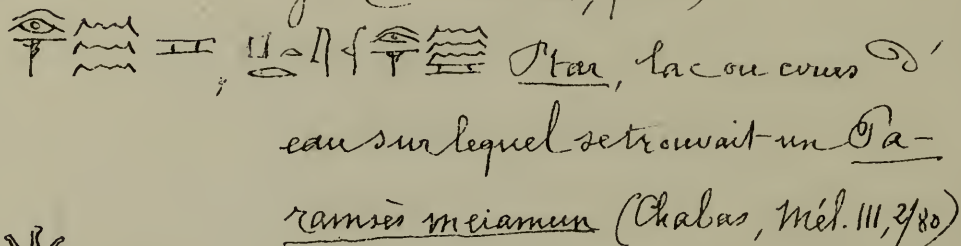 Ptar, lac ou cours d'
eau sur lequel se trouvait un Pa-
ramsès meiamun (Chabas, Mél. III, 2/80)